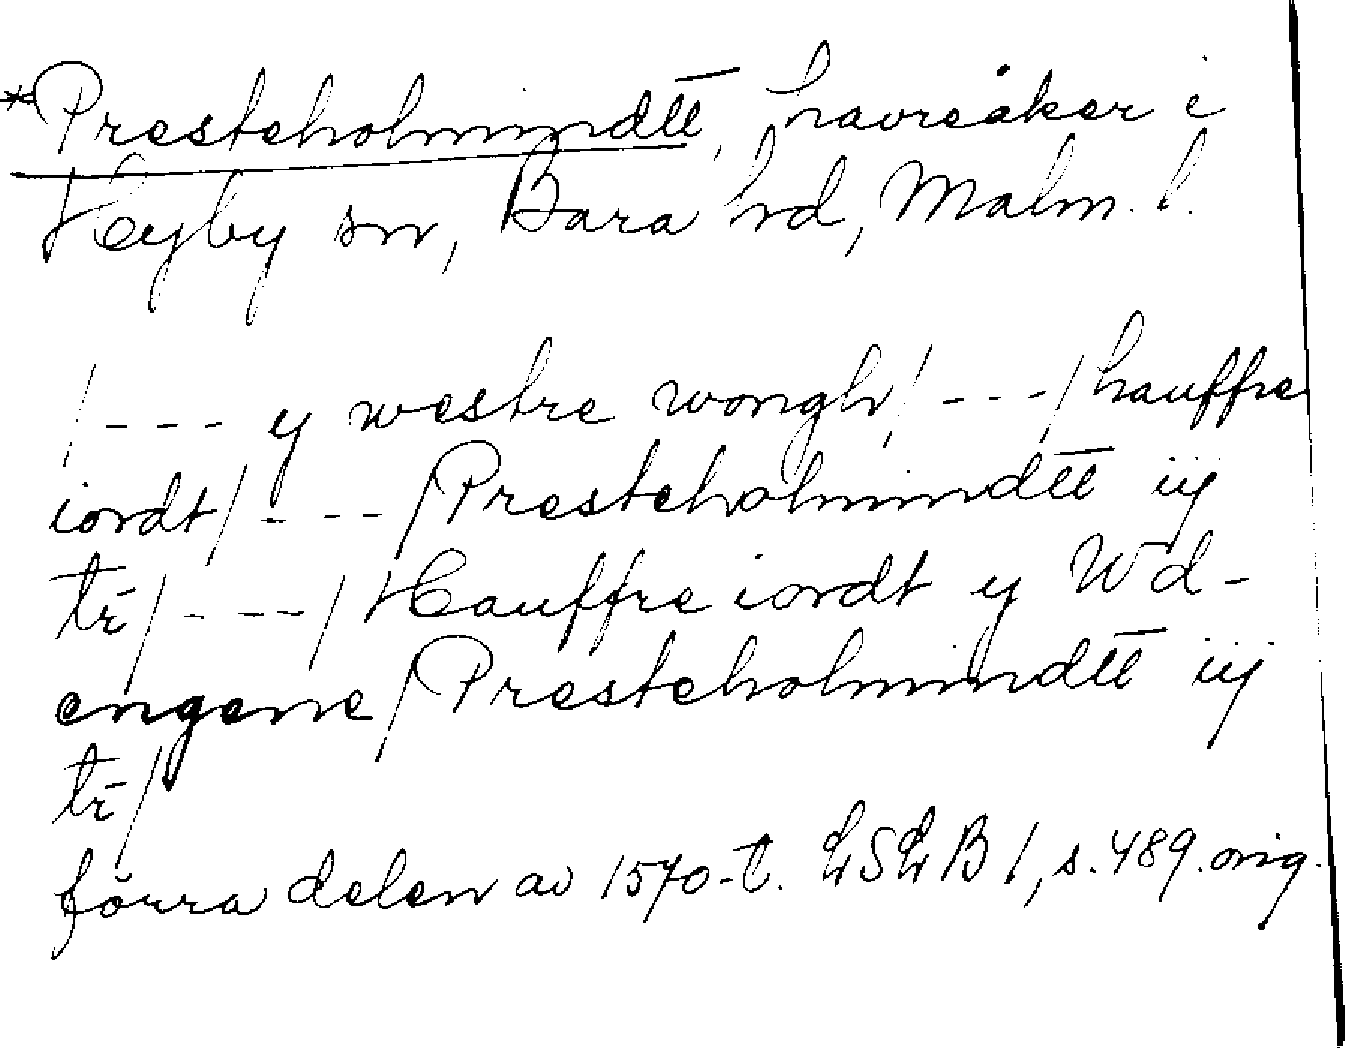 *Presteholmindtt̅, havreåker i
Hyby sn, Bara hd, Malm. l.
/ - - - y westre wongh/ - - - / hauffre
iordt/ - - - /Presteholmindtt̅ iij
tr̅/ - - - / Hauffre iordt y Wd-
engene /Presteholmindtt̅ iij
tr̅/
förra delen av 1570-t. LSLB 1, s. 489. orig.